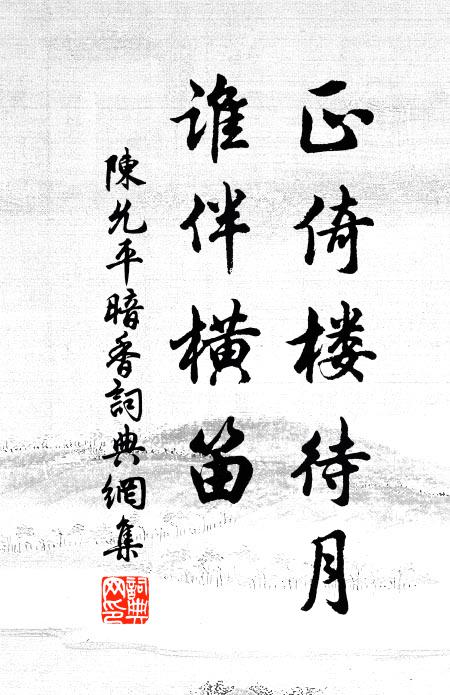 正倚楼待月
谁伴横笛
陳允平暗香詞典網集
詞典網印